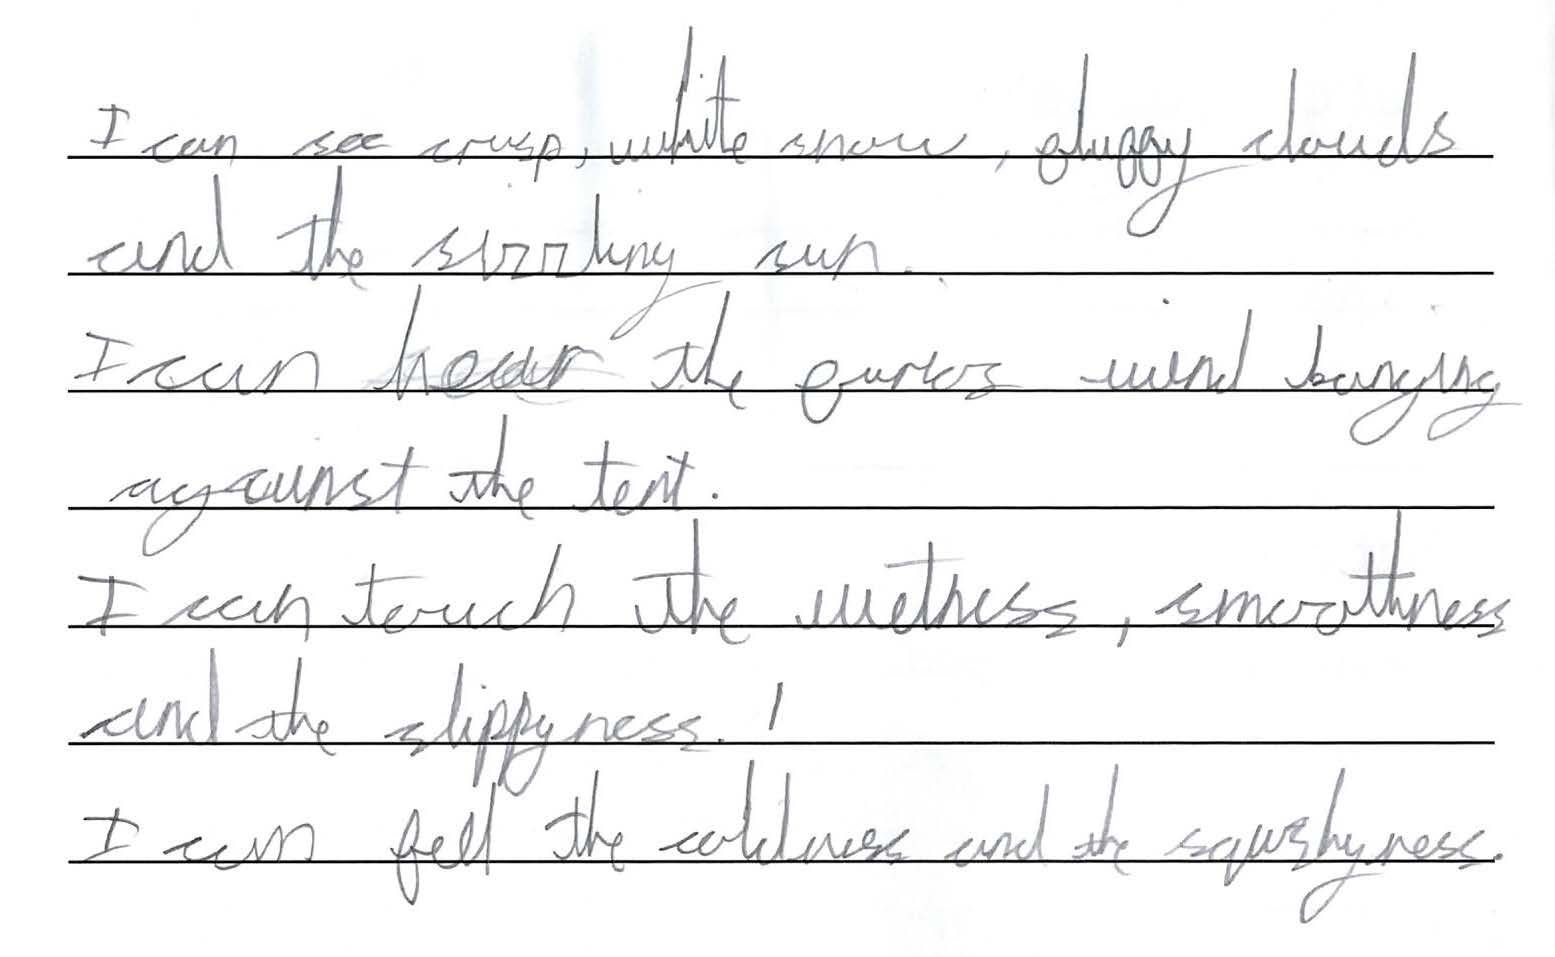 I can see crisp, white snow, fluffy clouds
and the sizzling sun.
I can hear the furios wind banging
against the tent.
I can touch the wetness, smoothness
and the slippyness.
I can fell the coldness and the squshyness.